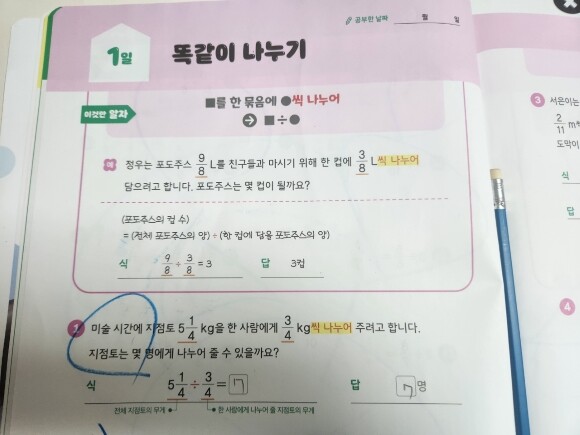 공부한 날짜 월 일
1일 똑같이 나누기
이것만 알자
■를 한 묶음에 ●씩 나누어
➔ ■÷●
예 정우는 포도주스 9/8 L를 친구들과 마시기 위해 한 컵에 3/8 L씩 나누어
담으려고 합니다. 포도주스는 몇 컵이 될까요?
(포도주스의 컵 수)
= (전체 포도주스의 양) ÷ (한 컵에 담을 포도주스의 양)
식 9/8 ÷ 3/8 = 3 답 3컵
1 미술 시간에 지점토 5 1/4 kg을 한 사람에게 3/4 kg씩 나누어 주려고 합니다.
지점토는 몇 명에게 나누어 줄 수 있을까요?
식 5 1/4 ÷ 3/4 = 7 답 7명
전체 지점토의 무게 한 사람에게 나누어 줄 지점토의 무게
3 서은이는
2/11 m
도막이
식
답
4